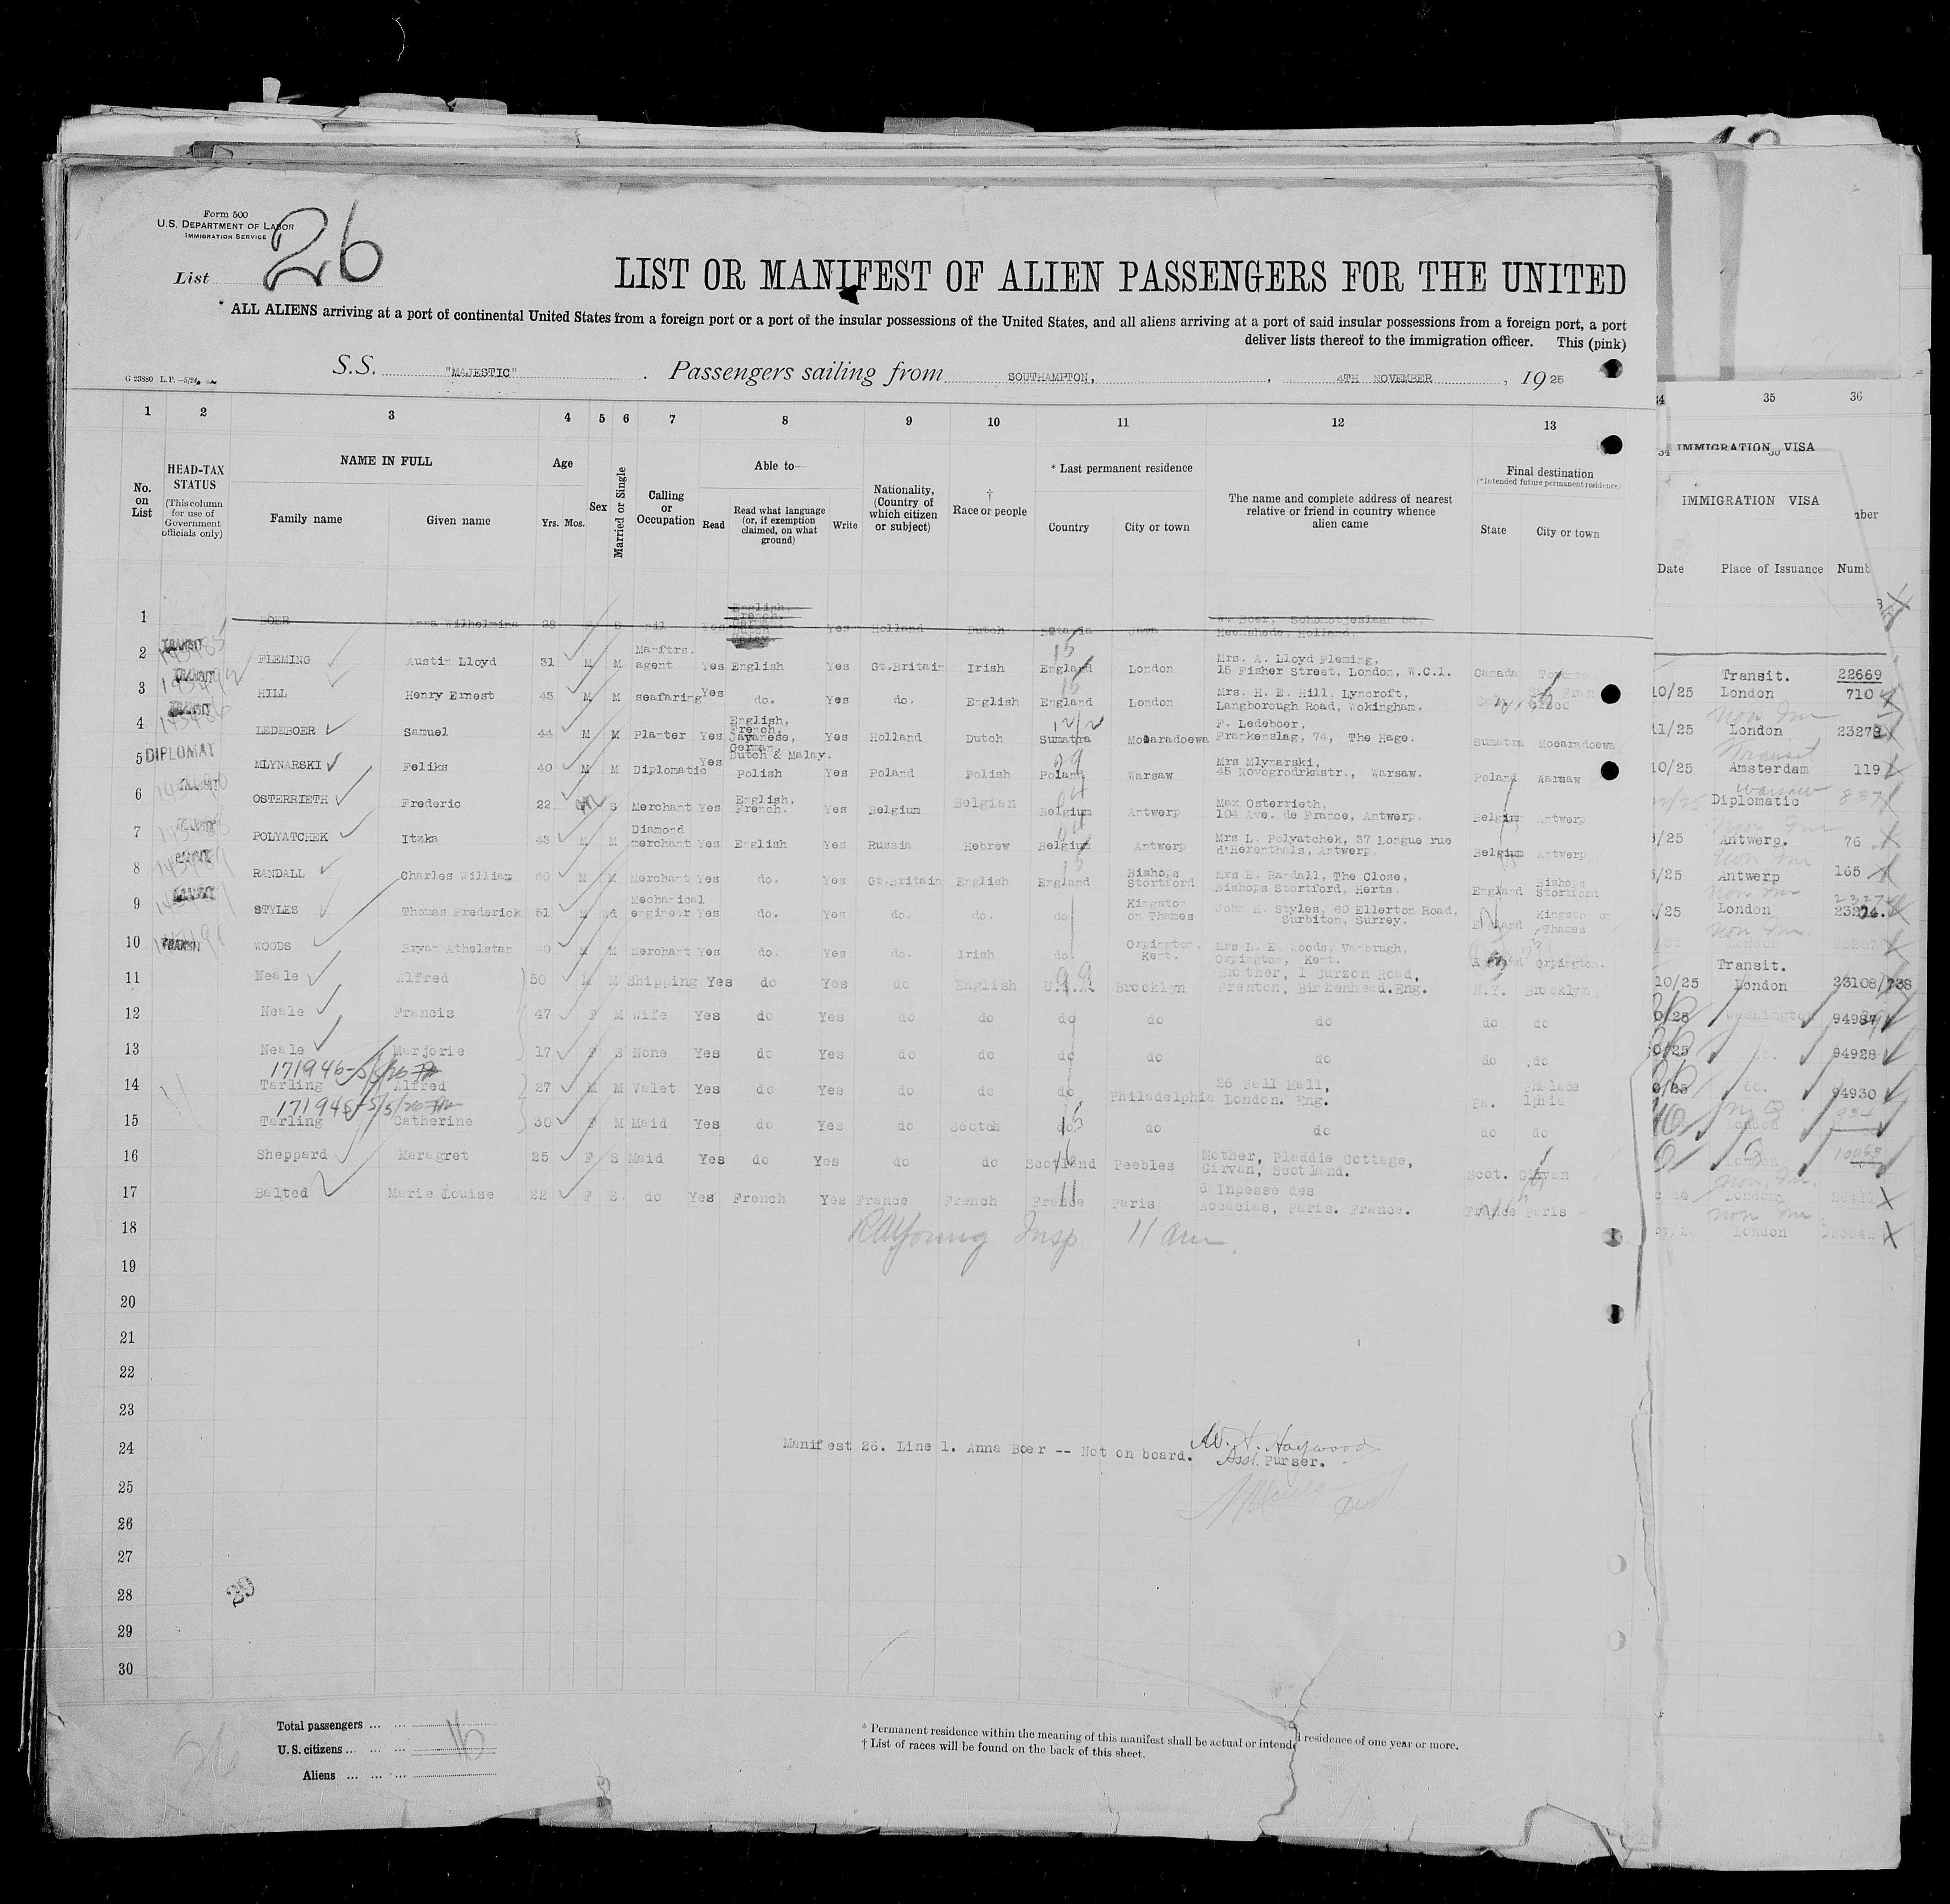 Form 500
U.S. DEPARTMENT OF LABOR
IMMIGRATION SERVICE
List 26
LIST OR MANIFEST OF ALIEN PASSENGERS FOR THE UNITED
* ALL ALIENS arriving at a port of continental United States from a foreign port or a port of the insular possessions of the United States, and all aliens arriving at a port of said insular possessions from a foreign port, a port
deliver lists thereof to the immigration officer. This (pink)
S.S. "MAJESTIC" . Passengers sailing from SOUTHAMPTON, , 4TH NOVEMBER , 1925
G 23880 L.P.—5/24
1 2 3 4 5 6 7 8 9 10 11 12 13 35 36
No. on List
HEAD-TAX STATUS
(This column for use of Government officials only)
NAME IN FULL
Family name Given name
Age
Yrs. Mos.
Sex
Married or Single
Calling or Occupation
Able to—
Read Read what language (or, if exemption claimed, on what ground) Write
Nationality, (Country of which citizen or subject)
† Race or people
* Last permanent residence
Country City or town
The name and complete address of nearest relative or friend in country whence alien came
Final destination
(*Intended future permanent residence)
State City or town
IMMIGRATION VISA
IMMIGRATION VISA
Date Place of Issuance Numb
1 BOER Anna Wilhelmina 28 S nil Yes Yes Holland Dutch Java Holland.
2 TRANSIT FLEMING Austin Lloyd 31 M M Manftrs. agent Yes English Yes Gt.Britain Irish England London Mrs. A. Lloyd Fleming, 15 Fisher Street, London, W.C.1. Canada Toronto Transit. 22669
3 TRANSIT HILL Henry Ernest 43 M M seafaring Yes do. Yes do. English England London Mrs. H. E. Hill, Lyncroft, Langborough Road, Wokingham. 10/25 London 710
4 TRANSIT LEDEBOER Samuel 44 M M Planter Yes English, French, Javanese, German, Dutch & Malay. Yes Holland Dutch Sumatra Moearadoewa F. Ledeboer, Frankenslag, 74, The Hage. Sumatra Moearadoewa 11/25 London 23278
5 DIPLOMAT MLYNARSKI Feliks 40 M M Diplomatic Yes Polish Yes Poland Polish Poland Warsaw Mrs Mlynarski, 45 Novogrodrkastr., Warsaw. Poland Warsaw 10/25 Amsterdam 119
6 OSTERRIETH Frederic 22 M S Merchant Yes English, French. Yes Belgium Belgian Belgium Antwerp Max Osterrieth, 104 Ave. de France, Antwerp. Belgium Antwerp Warsaw Diplomatic 837
7 POLYATCHEK Itzka 43 M M Diamond merchant Yes English Yes Russia Hebrew Belgium Antwerp Mrs L. Polyatchek, 37 Longue rue d'Herenthals, Antwerp. Belgium Antwerp /25 Antwerp. 76
8 RANDALL Charles William 60 M M Merchant Yes do. Yes Gt.Britain English England Bishops Stortford Mrs E. Randall, The Close, Bishops Stortford, Herts. England Bishops Stortford /25 Antwerp 165
9 STYLES Thomas Frederick 51 M Mechanical engineer Yes do. Yes do. do. do Kingston on Thames John H. Styles, 60 Ellerton Road, Surbiton, Surrey. England Kingston on Thames /25 London 23274.
10 TRANSIT WOODS Bryan Athelstan 40 M M Merchant Yes do. Yes do. Irish do Orpington, Kent. Mrs L. E. Woods, Vanbrugh, Orpington, Kent. Orpington. London
11 Neale Alfred 50 M M Shipping Yes do Yes do English U.S.A Brooklyn Brother, 1 Curzon Road, Prenton, Birkenhead.Eng. N.Y. Brooklyn Transit. 10/25 London 23108/738
12 Neale Francis 47 F M Wife Yes do Yes do do do do do do do Washington
13 Neale Marjorie 17 F S None Yes do Yes do do do do do do do do. 94928
171946-5/5/26
14 Tarling Alfred 27 M M Valet Yes do Yes do do do Philadelphia 26 Pall Mall, London. Eng. Pa. Philadelphia do. 94930
15 Tarling Catherine 30 F M Maid Yes do Yes do Scotch do do do do do London
16 Sheppard Maragret 25 F S Maid Yes do Yes do do Scotland Peebles Mother, Pladdie Cottage, Girvan, Scotland. Scot. Girvan
17 Balted Marie Louise 22 F S. do Yes French Yes France French France Paris 6 Inpesse des Accacias, Paris. France. France Paris London
18 RA Young Insp 11 am London
19
20
21
22
23
24 Manifest 26. Line 1. Anna Boer -- Not on board. W. Haywood
Asst. Purser.
25
26
27
28
29
30
Total passengers 16
U.S. citizens
Aliens
* Permanent residence within the meaning of this manifest shall be actual or intended residence of one year or more.
† List of races will be found on the back of this sheet.